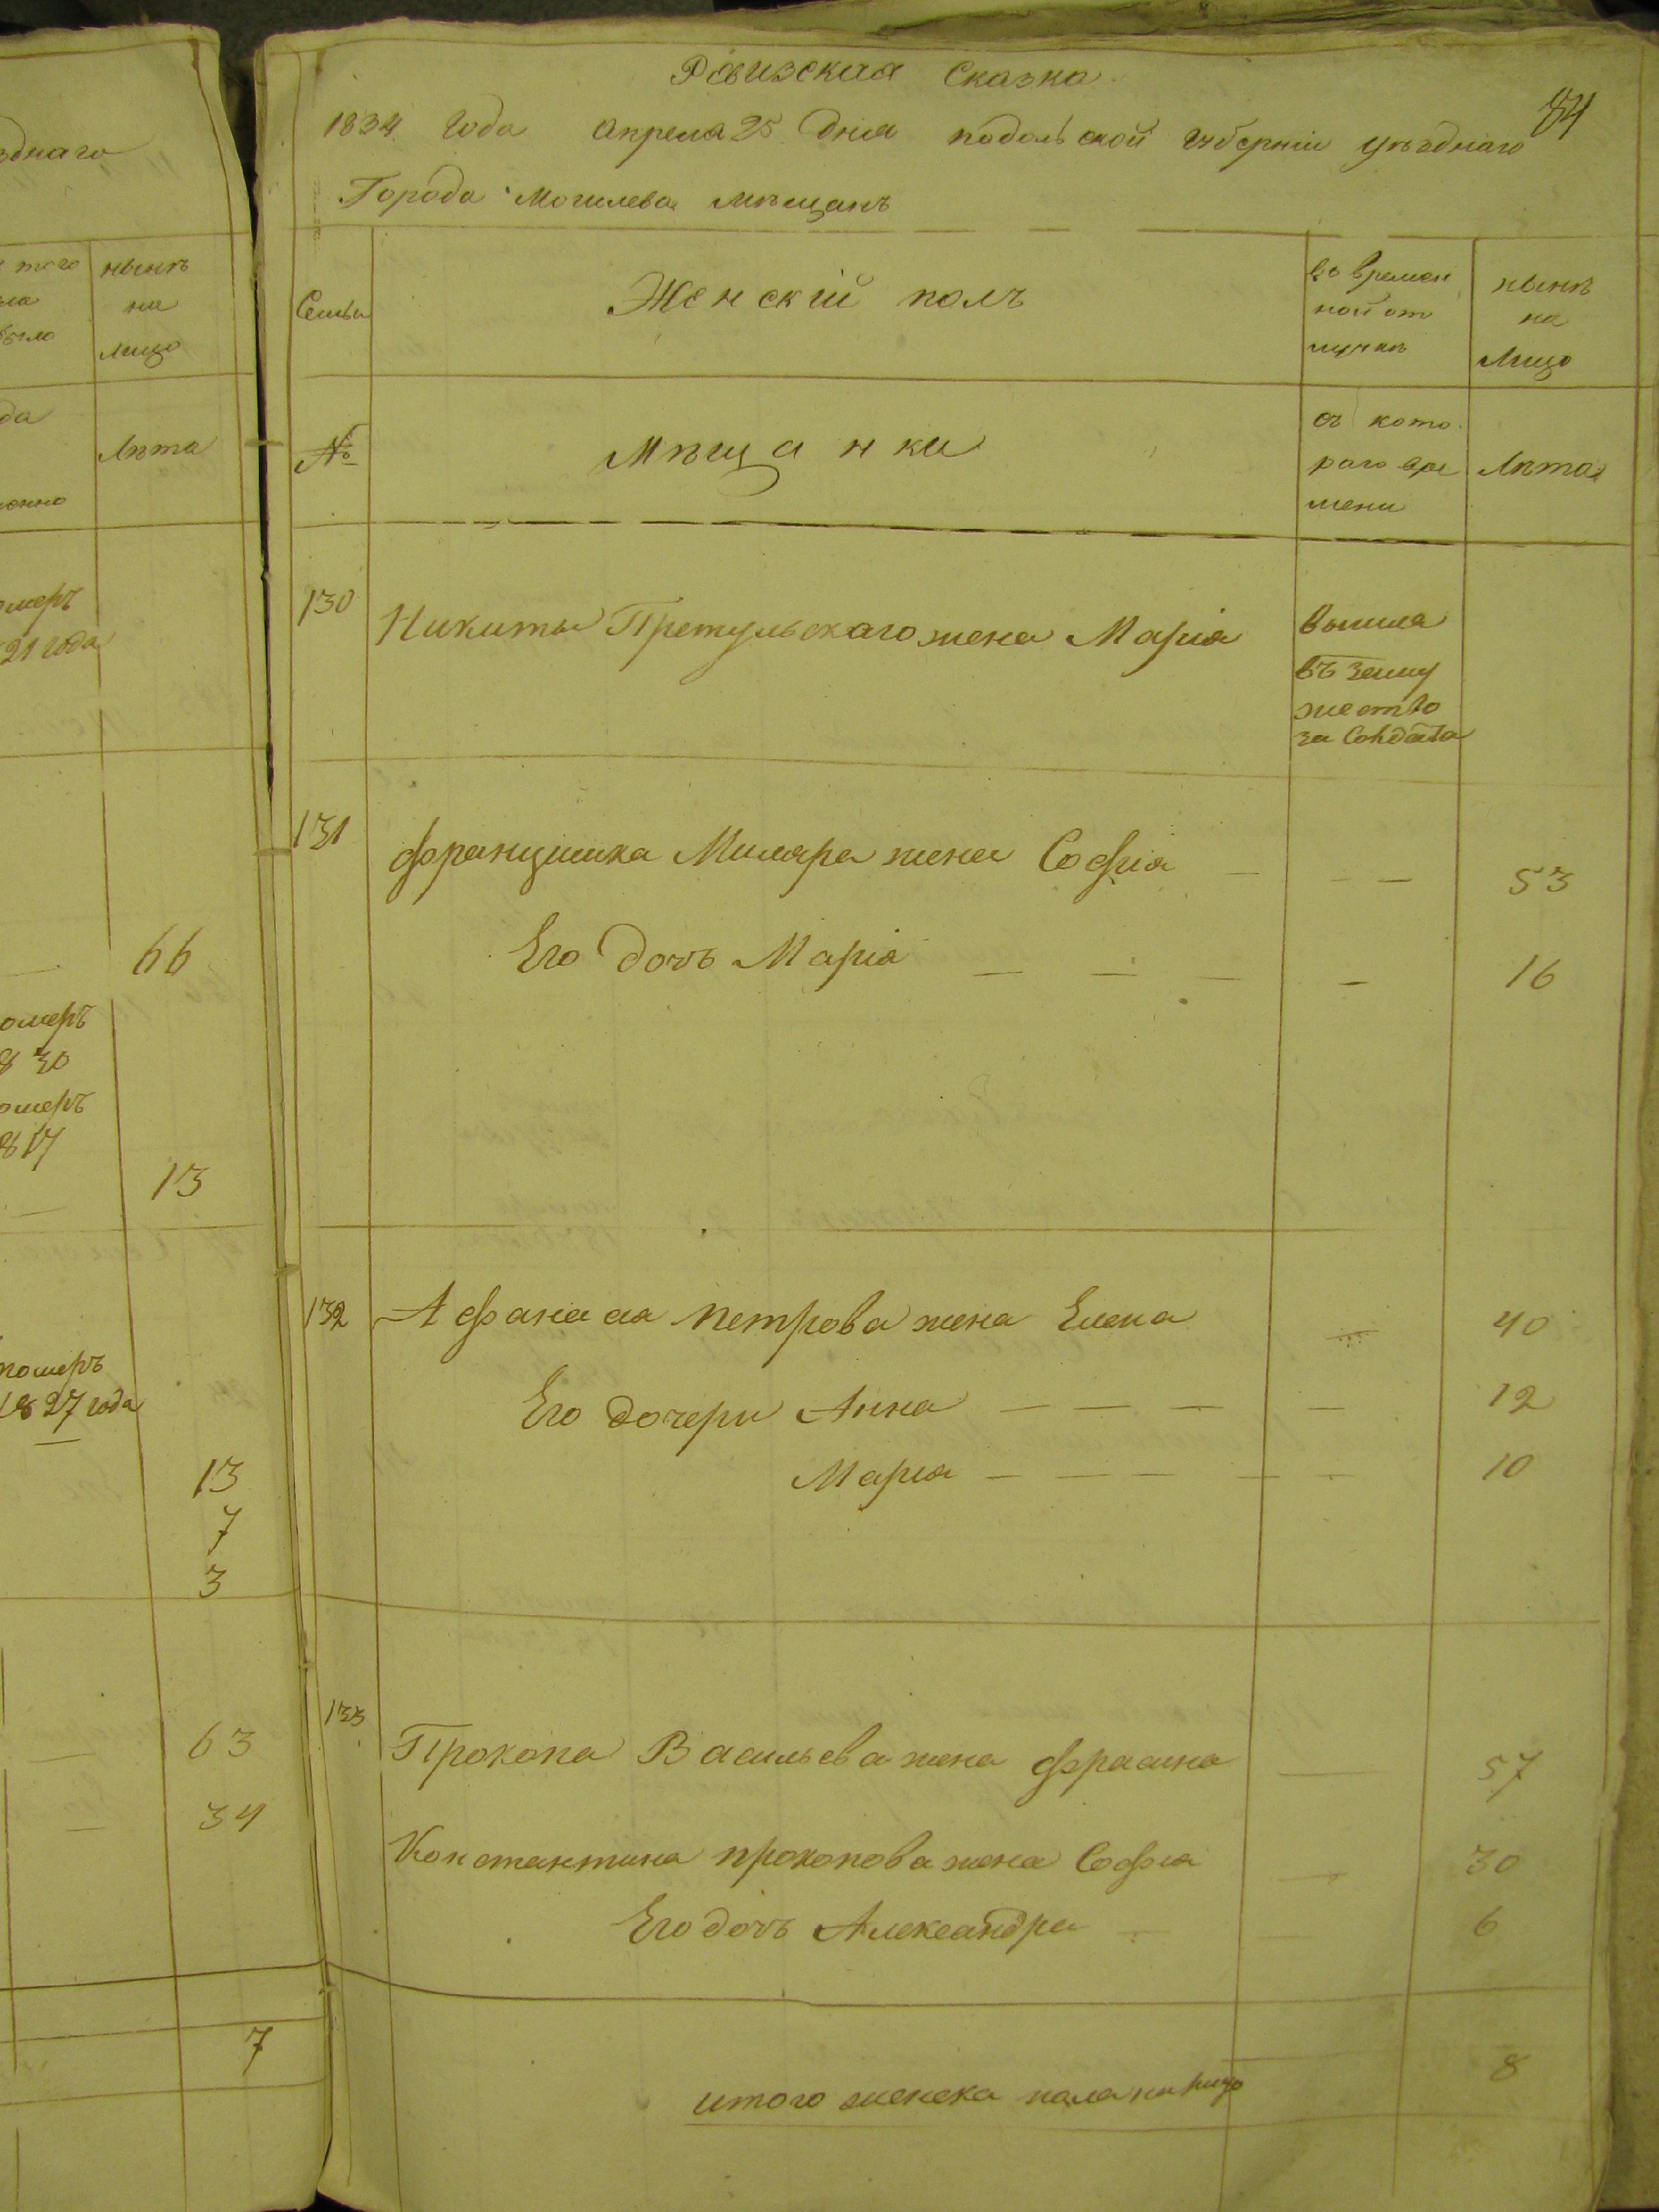 зднаго
того нынѣ
ла на
было лицо
да
Лѣта
онно
омеръ
21 года
66
омеръ
830
омеръ
817
13
померъ
1827 года
13
7
3
63
34
7
Ревизская Сказка
84
1834 Года Апреля 25 Дня подольской губерніи уѣзднаго
Города Могилева мѣщанъ
Семьи
Женскій полъ
во времен
ной от
лучкѣ
нынѣ
на
Лицо
№
Мѣщанки
съ кото
раго вре
мени
Лѣта
130 Никиты Претульскаго жена Марія
вышла
въ заму
жество
за Солдата
131 францишка Миляра жена Софія — — — 53
Его дочь Марія — — — — 16
132 Афанасія петрова жена Елена — 40
Его дочери Анна — — — — 12
Марія — — — — — 10
133 Прокопа Васильева жена фрасина — 57
Константина прокопова жена Софія — 30
Его дочь Александра — — 6
итого женска пола на лицо 8